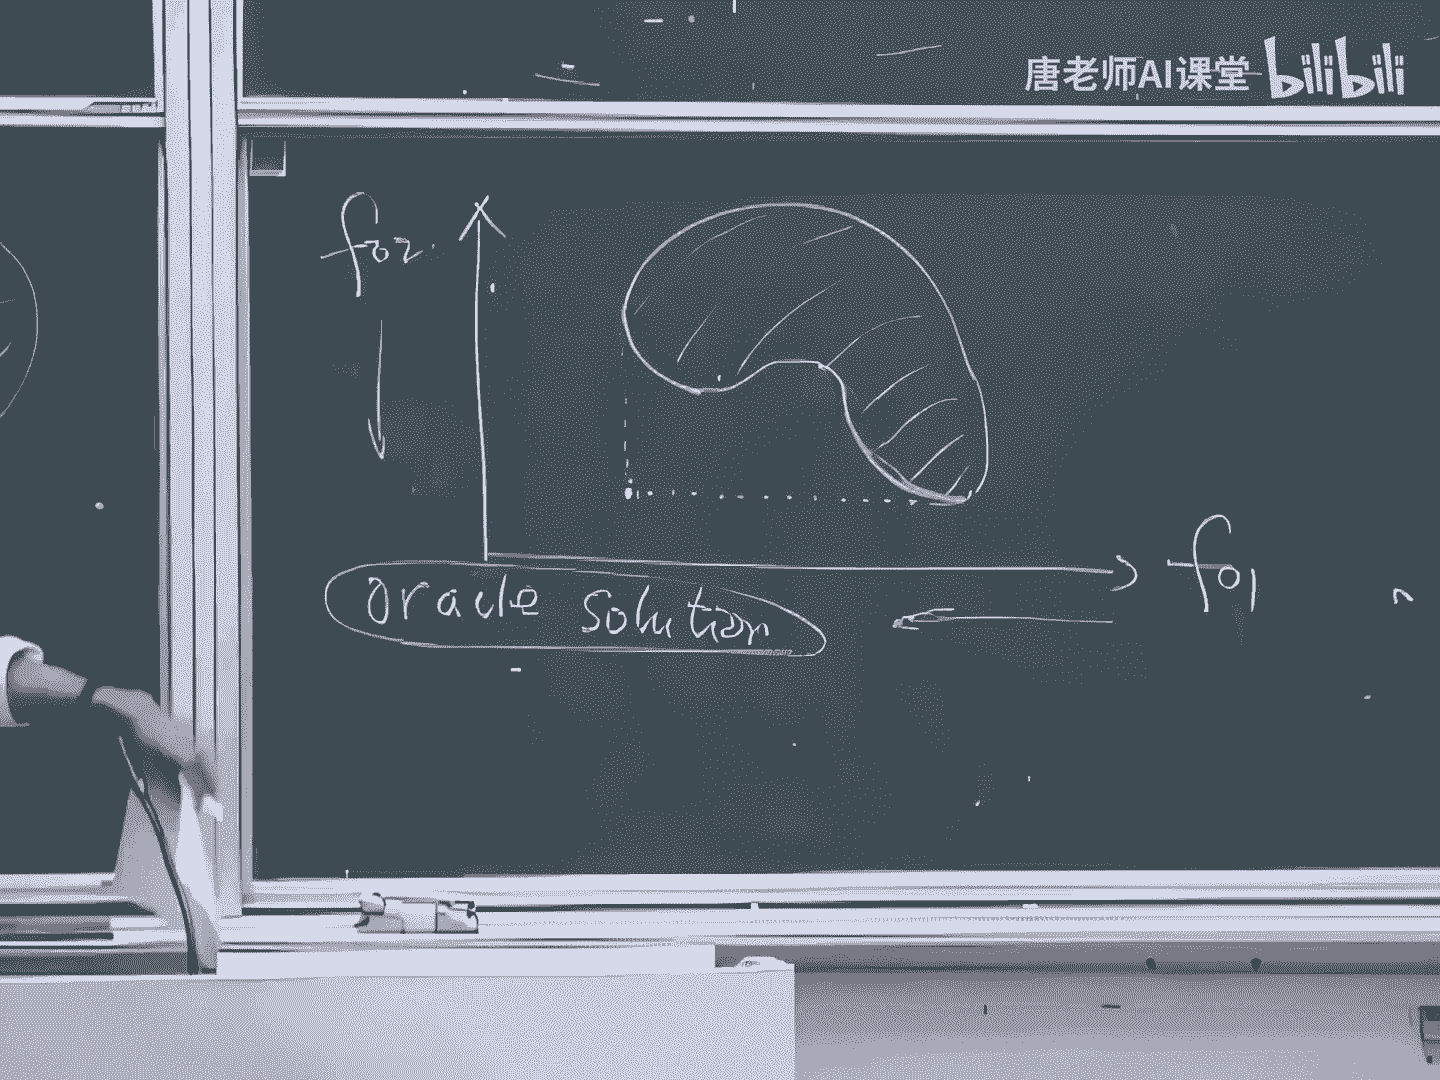 唐老师AI课堂 bilibili
f02
f01
oracle solution